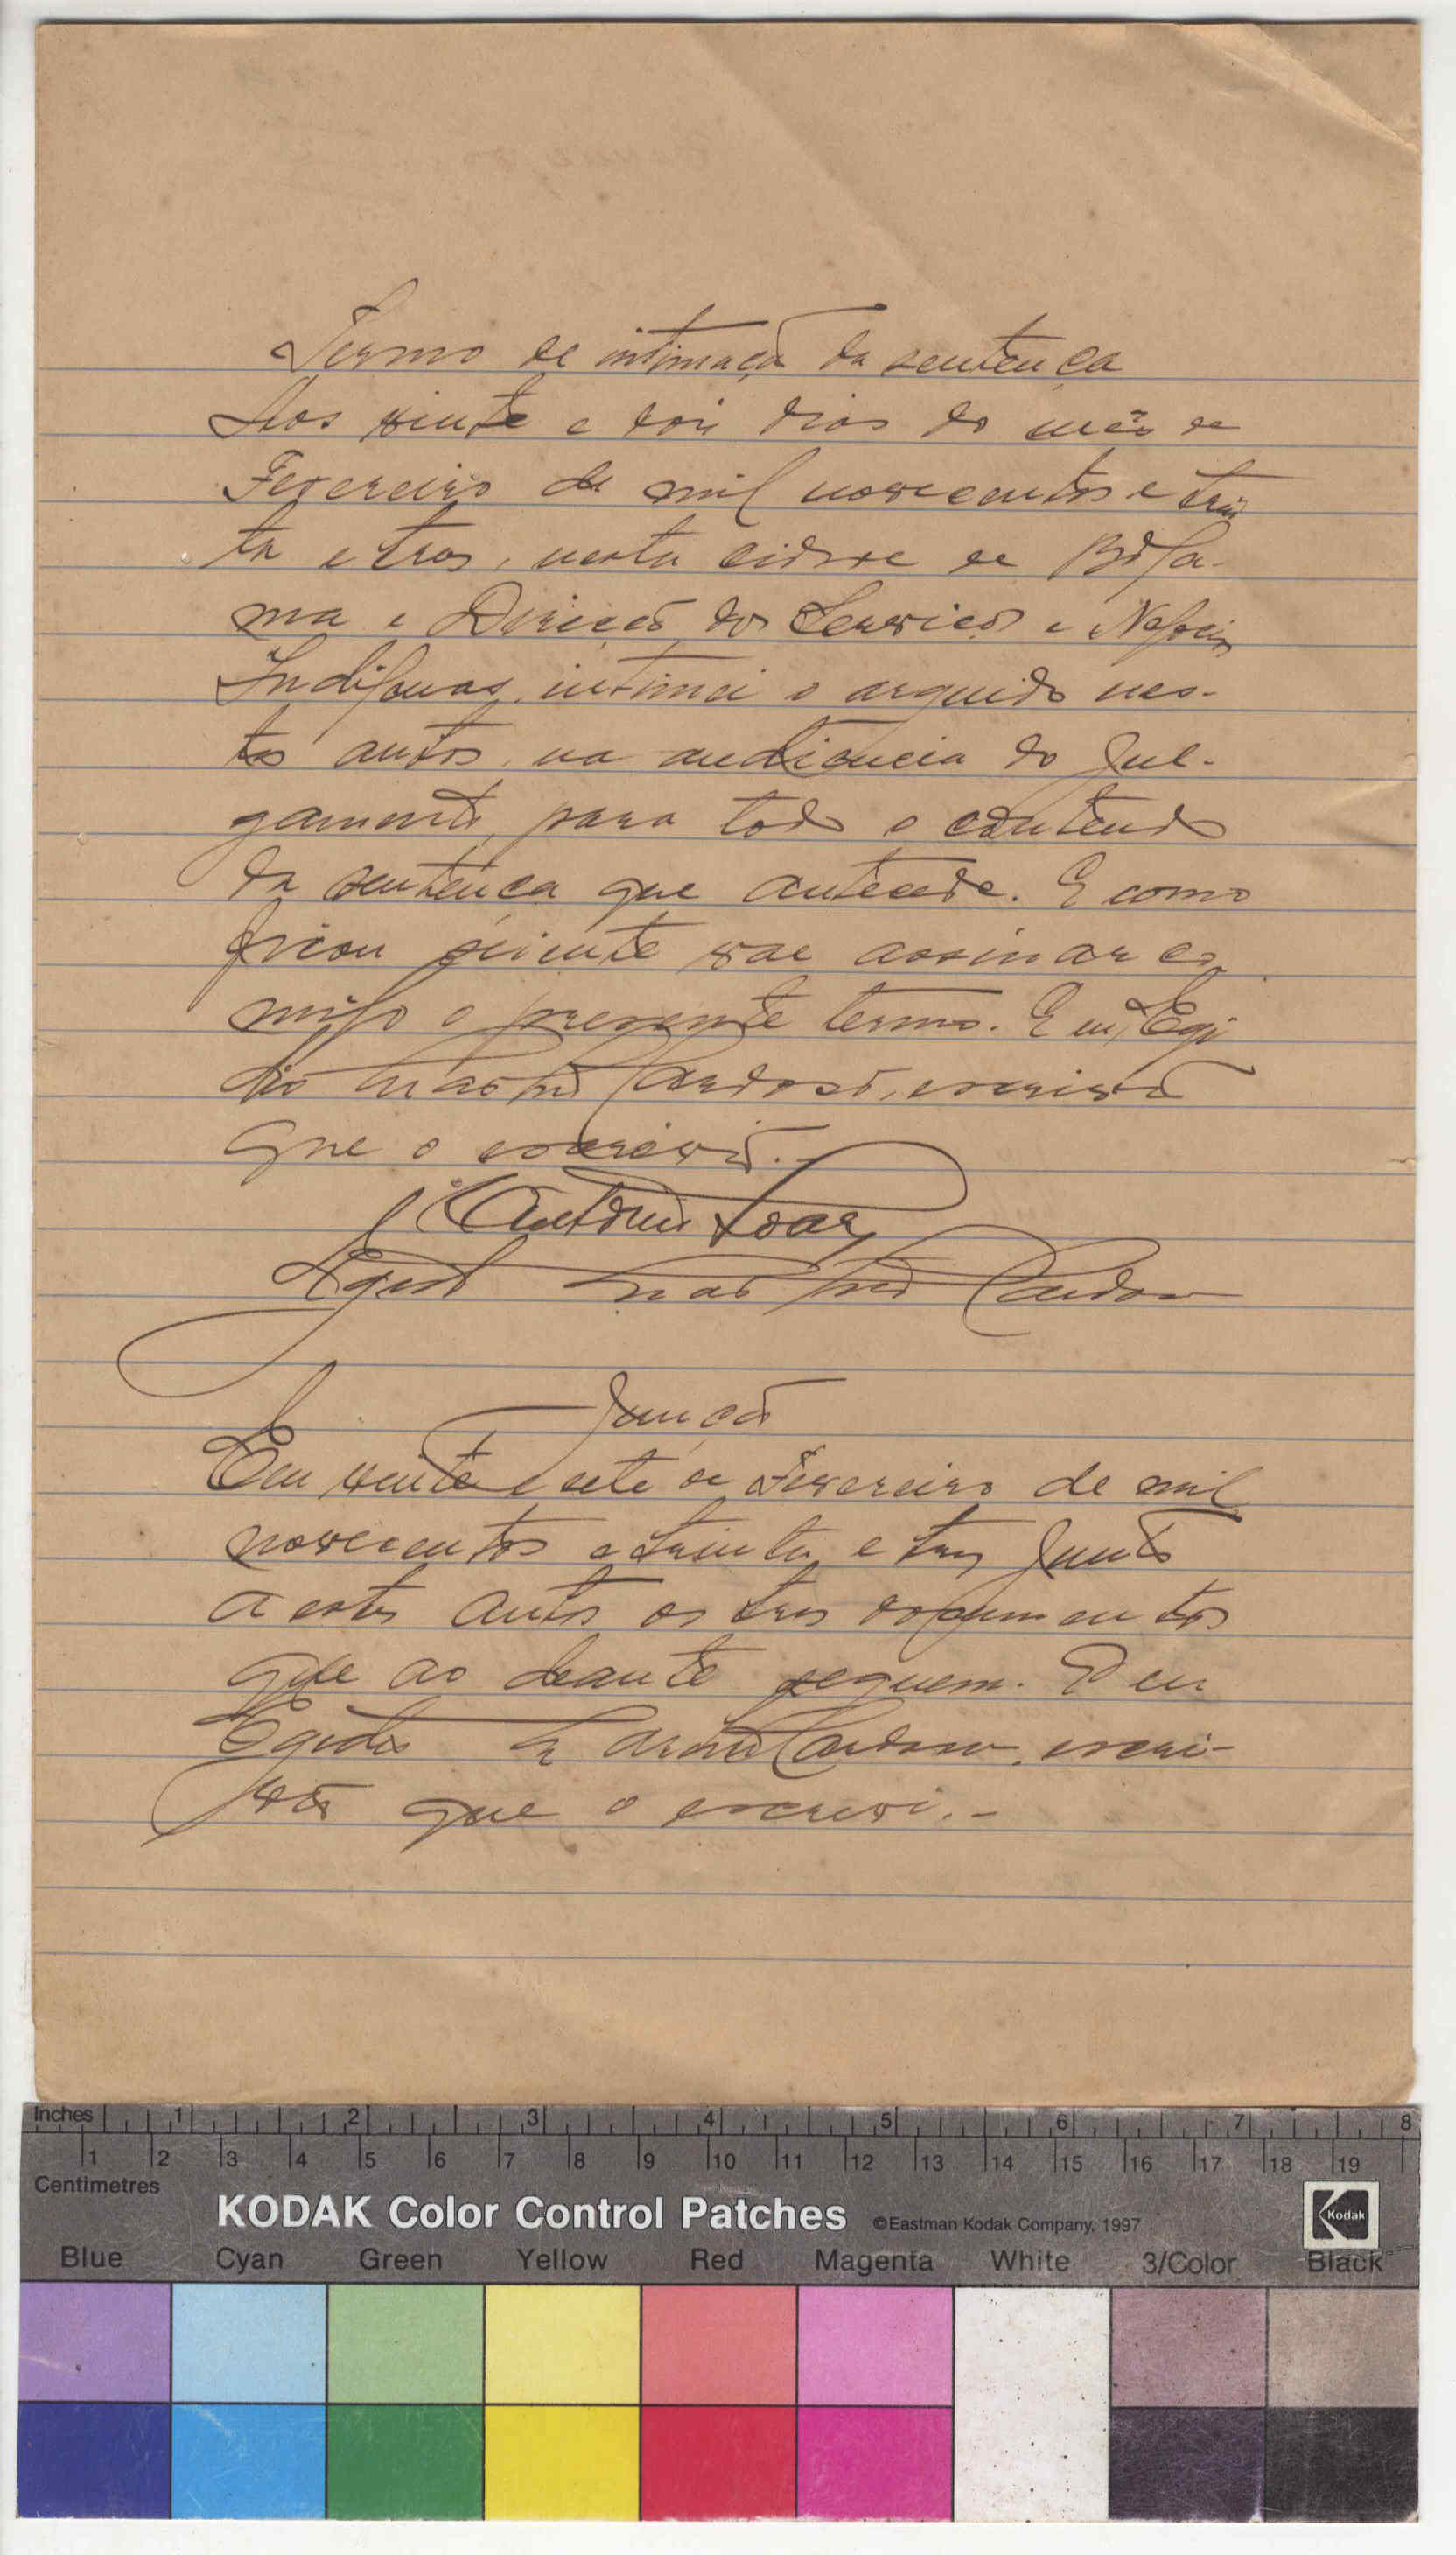 Termo de intimação da sentença
Aos vinte e dois dias do mês de
Fevereiro de mil novecentos e trin
ta e tres, nesta cidade de Bola-
ma e Direcção dos Serviços e Negocios
Indigenas, intimei o arguido nes-
tes autos, na audiencia do Jul-
gamento, para todo o conteudo
da sentença que antecede. E como
ficou sciente vae assinar co
migo o presente termo. E eu, Egi
dio Cardoso, escrivão
que o escrevi.-
Antonio Soares
Egidio Cardoso
Junção
Em vinte e sete de Fevereiro de mil
novecentos e trinta e tres Junto
a estes autos os tres documentos
que ao deante seguem. E eu
Egidio Cardoso, escri-
vão que o escrevi.-
Inches 1 2 3 4 5 6 7 8
1 2 3 4 5 6 7 8 9 10 11 12 13 14 15 16 17 18 19
Centimetres
KODAK Color Control Patches ©Eastman Kodak Company, 1997 Kodak
Blue Cyan Green Yellow Red Magenta White 3/Color Black